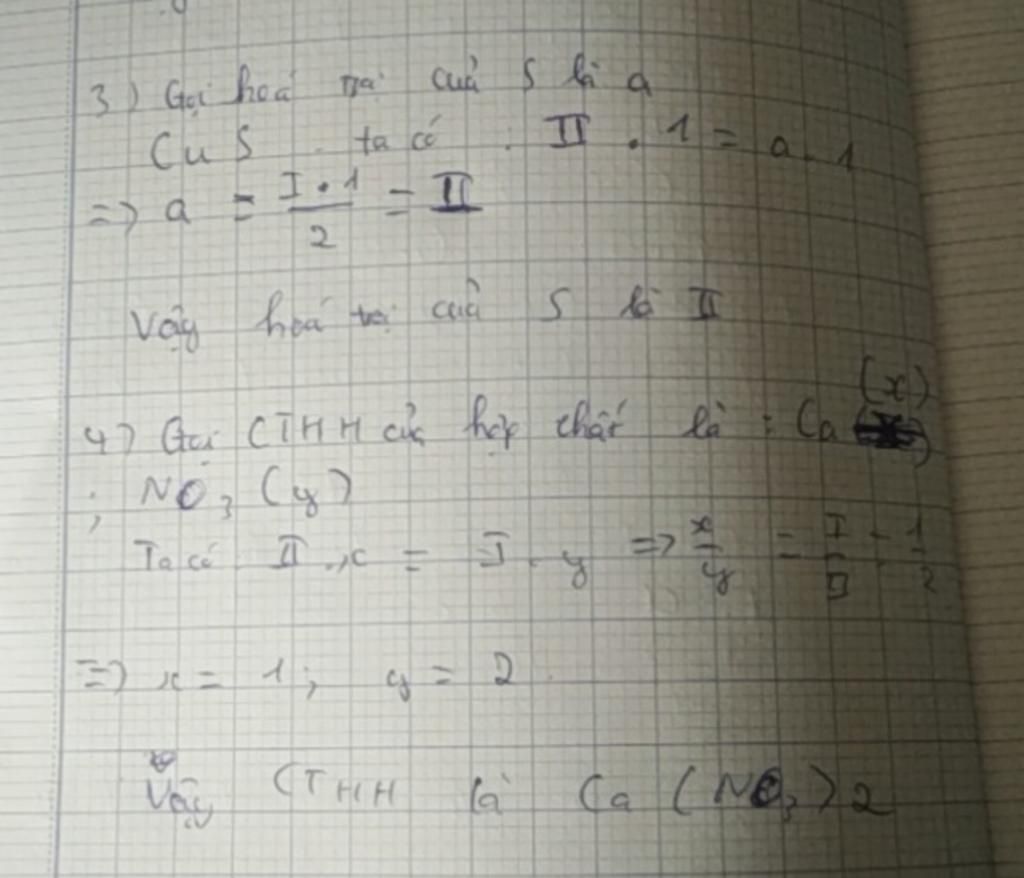 3) Gọi hoá trị cuả S là a
CuS ta có : II . 1 = a . 1
=> a = I . 1 / 2 = II
Vậy hoá trị cuả S là II
4) Gọi CTHH của hợp chất là : Ca (x)
; NO3 (y)
Ta có II . x = I . y => x/y = I/II = 1/2
=> x = 1 ; y = 2
Vậy CTHH là Ca (NO3)2